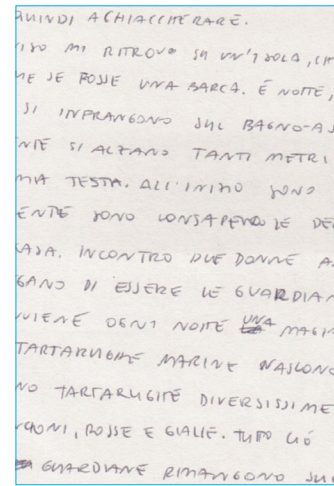 QUINDI A CHIACCHERARE.
VISO MI RITROVO SU UN'ISOLA,
ME SE FOSSE UNA BARCA. É NOTTE,
SI INFRANGONO SUL BAGNO-A
NTE SI ALZANO TANTI METRI
MIA TESTA. ALL'INIZIO SONO
ENTE SONO CONSAPEVOLE DE
CASA. INCONTRO DUE DONNE A
GANO DI ESSERE LE GUARDIAN
VIENE OGNI NOTTE UNA MAGI
TARTARUGHE MARINE NASCONO
NO TARTARUGHE DIVERSISSIME
CIONI, ROSSE E GIALLE. TUTTO CIÓ
GUARDIANE RIMANGONO SU